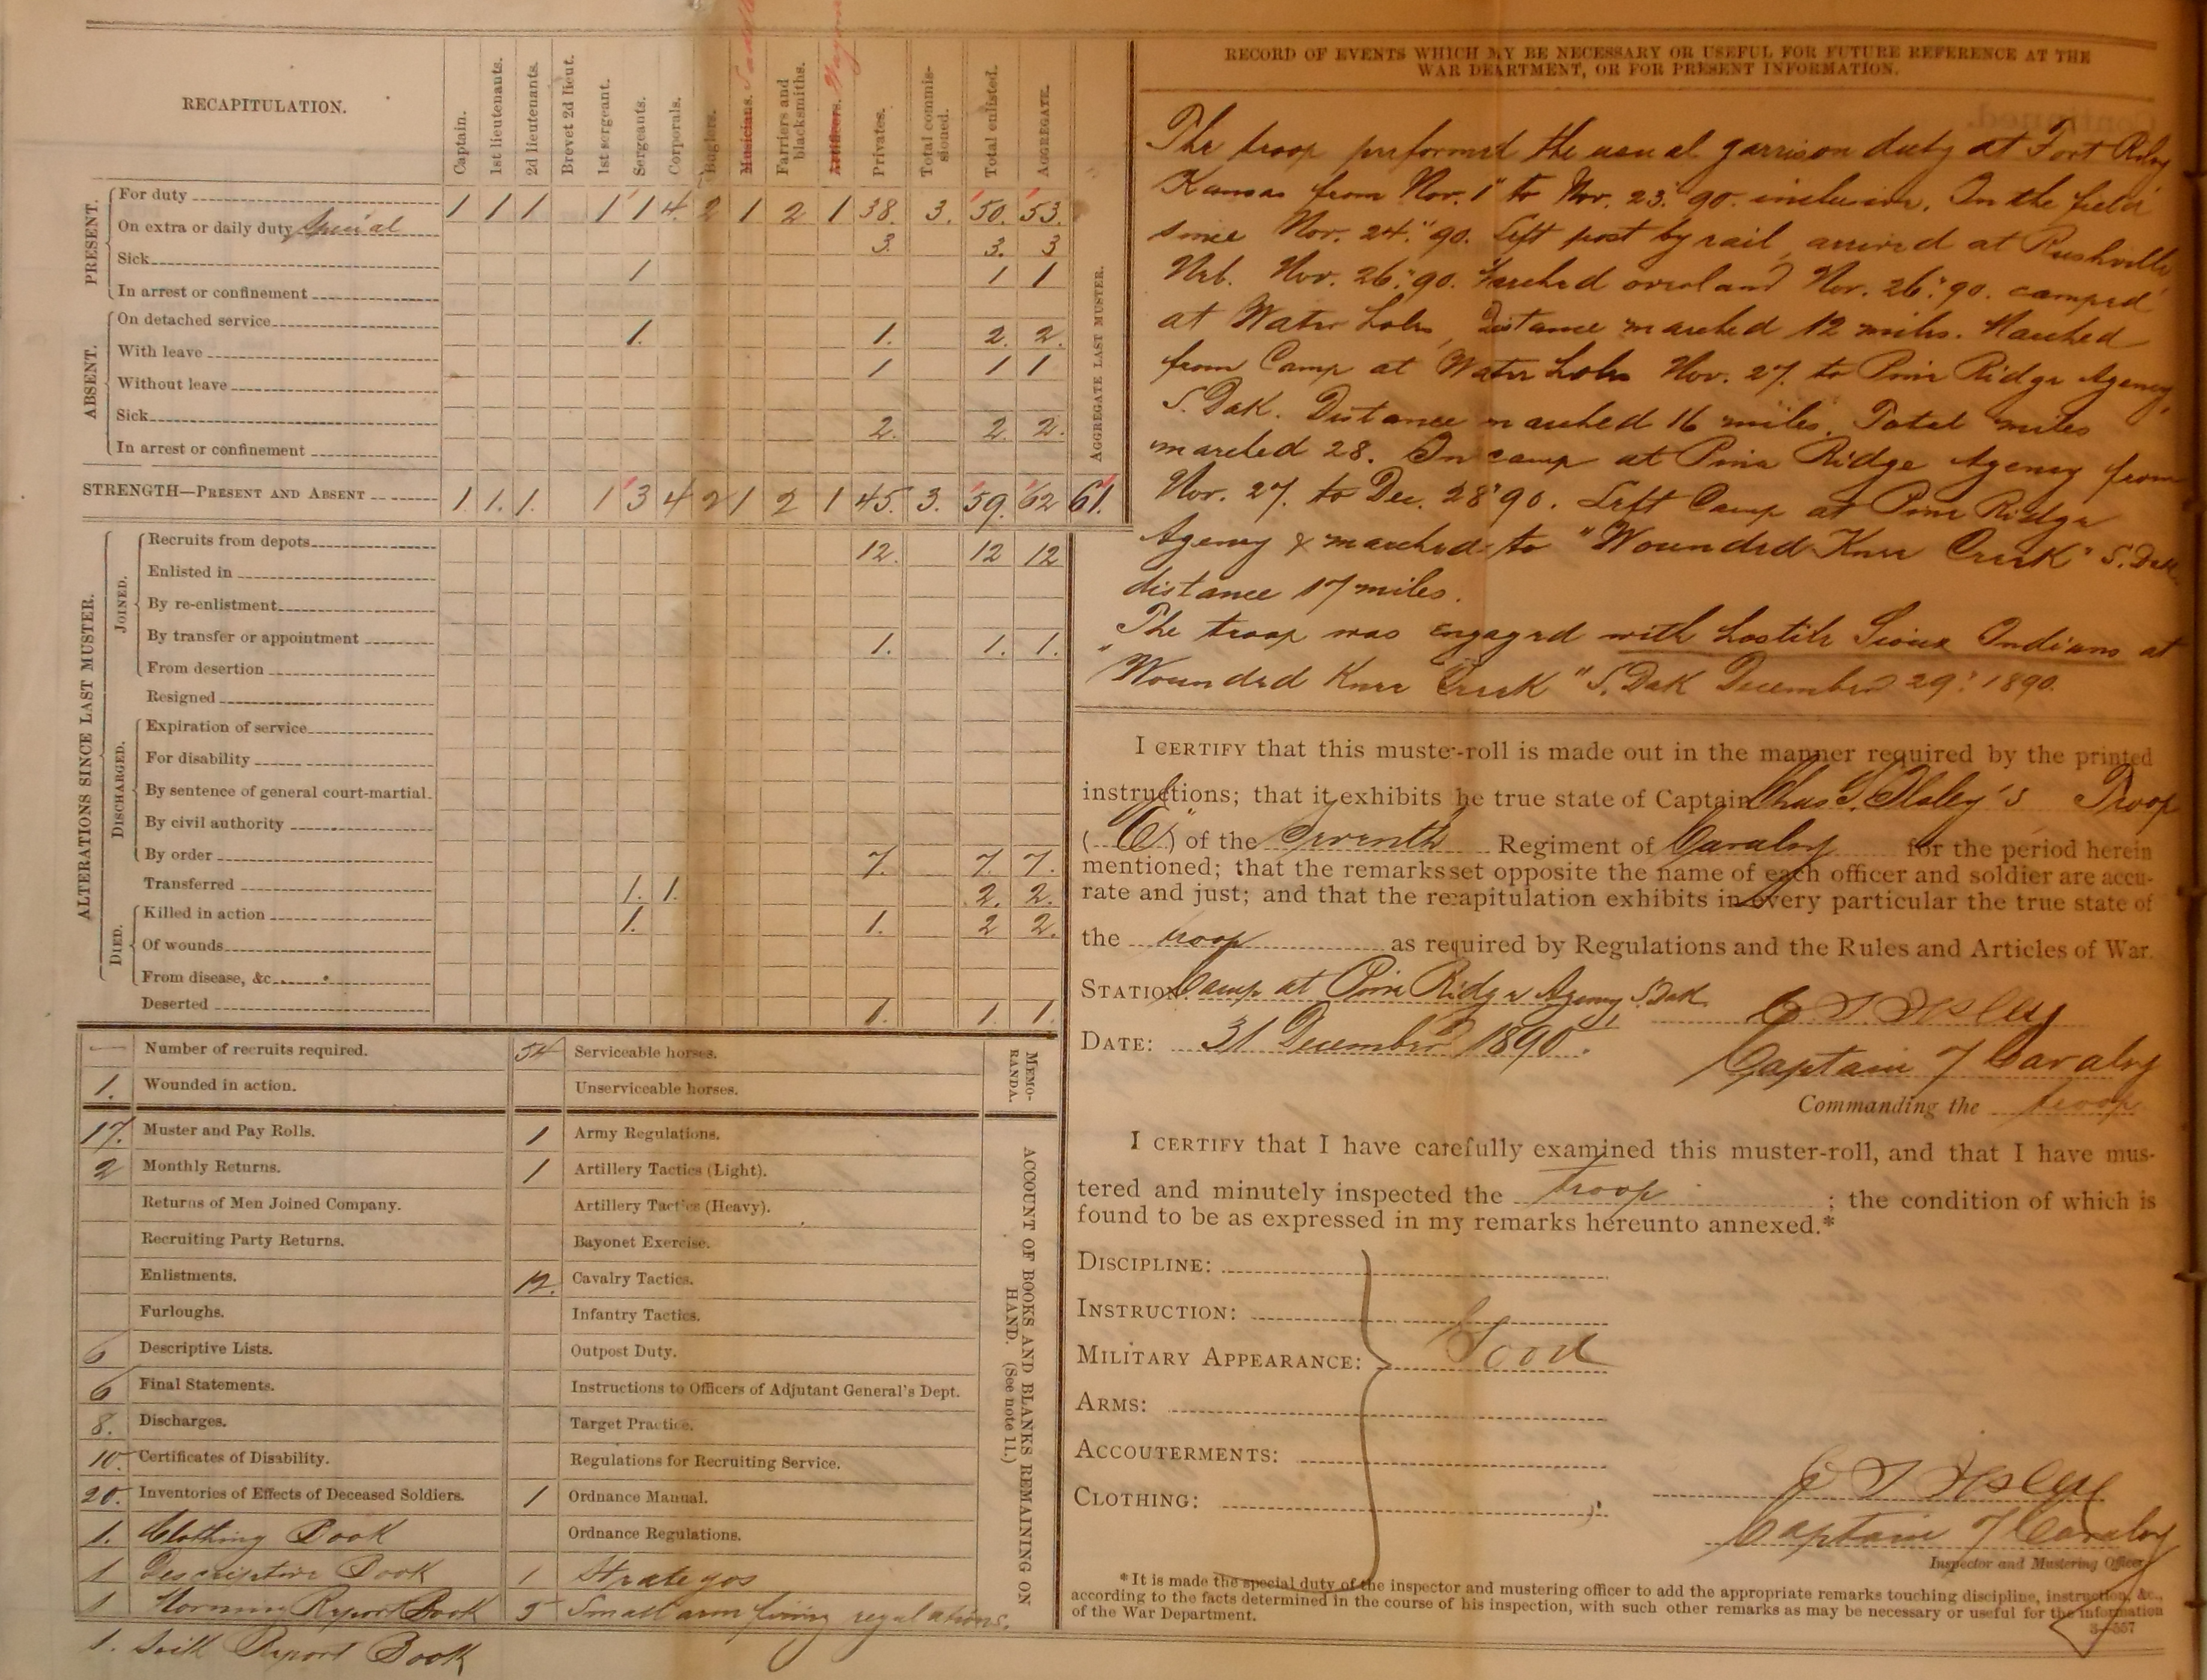 RECAPITULATION.
Captain.
1st lieutenants.
2d lieutenants.
Brevet 2d lieut.
1st sergeant.
Sergeants.
Corporals.
Buglers.
Musicians.
Farriers and blacksmiths.
Artificers.
Privates.
Total commissioned.
Total enlisted.
AGGREGATE.
AGGREGATE LAST MUSTER.
PRESENT.
For duty 1 1 1 1 1 4 2 1 2 1 38 3. 50. 53.
On extra or daily duty special 3. 3. 3
Sick 1 1 1
In arrest or confinement
ABSENT.
On detached service 1. 1. 2. 2.
With leave 1 1 1
Without leave
Sick 2. 2. 2.
In arrest or confinement
STRENGTH—PRESENT AND ABSENT 1. 1. 1. 1 3 4 2 1 2 1 45. 3. 59. 62 61.
ALTERATIONS SINCE LAST MUSTER.
JOINED.
Recruits from depots 12. 12 12
Enlisted in
By re-enlistment
By transfer or appointment 1. 1. 1.
From desertion
Resigned
DISCHARGED.
Expiration of service
For disability
By sentence of general court-martial.
By civil authority
By order 7. 7. 7.
Transferred 1. 1. 2. 2.
DIED.
Killed in action 1. 1. 2 2.
Of wounds
From disease, &c
Deserted 1. 1. 1.
— Number of recruits required. 54 Serviceable horses.
1. Wounded in action. Unserviceable horses.
MEMORANDA.
17. Muster and Pay Rolls. 1 Army Regulations.
2 Monthly Returns. 1 Artillery Tactics (Light).
Returns of Men Joined Company. Artillery Tactics (Heavy).
Recruiting Party Returns. Bayonet Exercise.
Enlistments. 12. Cavalry Tactics.
Furloughs. Infantry Tactics.
6 Descriptive Lists. Outpost Duty.
6 Final Statements. Instructions to Officers of Adjutant General's Dept.
8. Discharges. Target Practice.
10. Certificates of Disability. Regulations for Recruiting Service.
20. Inventories of Effects of Deceased Soldiers. 1 Ordnance Manual.
1. Clothing Book Ordnance Regulations.
1 Descriptive Book 1 Strategos
1 Morning Report Book 5 Small arm firing regulations.
1. Sick Report Book
ACCOUNT OF BOOKS AND BLANKS REMAINING ON HAND. (See note 11.)
RECORD OF EVENTS WHICH MY BE NECESSARY OR USEFUL FOR FUTURE REFERENCE AT THE
WAR DEARTMENT, OR FOR PRESENT INFORMATION.
The troop preformed the usual garrison duty at Fort Riley
Kansas from Nov. 1" to Nov. 23" 90. inclusive. In the field
since Nov. 24." 90. Left post by rail, arrived at Rushville
Neb. Nov. 26." 90. Marched overland Nov. 26." 90. camped
at Water holes, Distance marched 12 miles. Marched
from Camp at Water holes Nov. 27. to Pine Ridge Agency,
S. Dak. Distance marched 16 miles. Total miles
marched 28. In camp at Pine Ridge Agency from
Nov. 27. to Dec. 28" 90. Left Camp at Pine Ridge
Agency & marched to "Wounded Knee Creek" S. Dak.
distance 17 miles.
The troop was engaged with hostile Sioux Indians at
"Wounded Knee Creek" S. Dak December 29." 1890.
I CERTIFY that this muste-roll is made out in the manner required by the printed
instructions; that it exhibits he true state of Captain Chas. S. Ilsley's Troop
( "E" ) of the Seventh Regiment of Cavalry for the period herein
mentioned; that the remarks set opposite the name of each officer and soldier are accu-
rate and just; and that the recapitulation exhibits in every particular the true state of
the troop as required by Regulations and the Rules and Articles of War.
STATION: Camp at Pine Ridge Agency, S. Dak. C S Ilsley
DATE: 31 December 1890. Captain 7 Cavalry
Commanding the troop
I CERTIFY that I have carefully examined this muster-roll, and that I have mus-
tered and minutely inspected the troop ; the condition of which is
found to be as expressed in my remarks hereunto annexed.*
DISCIPLINE:
INSTRUCTION:
MILITARY APPEARANCE: Good
ARMS:
ACCOUTERMENTS:
CLOTHING:
C S Ilsley
Captain 7 Cavalry
Inspector and Mustering Officer
*It is made the special duty of the inspector and mustering officer to add the appropriate remarks touching discipline, instruction, &c.,
according to the facts determined in the course of his inspection, with such other remarks as may be necessary or useful for the information
of the War Department.
3—557